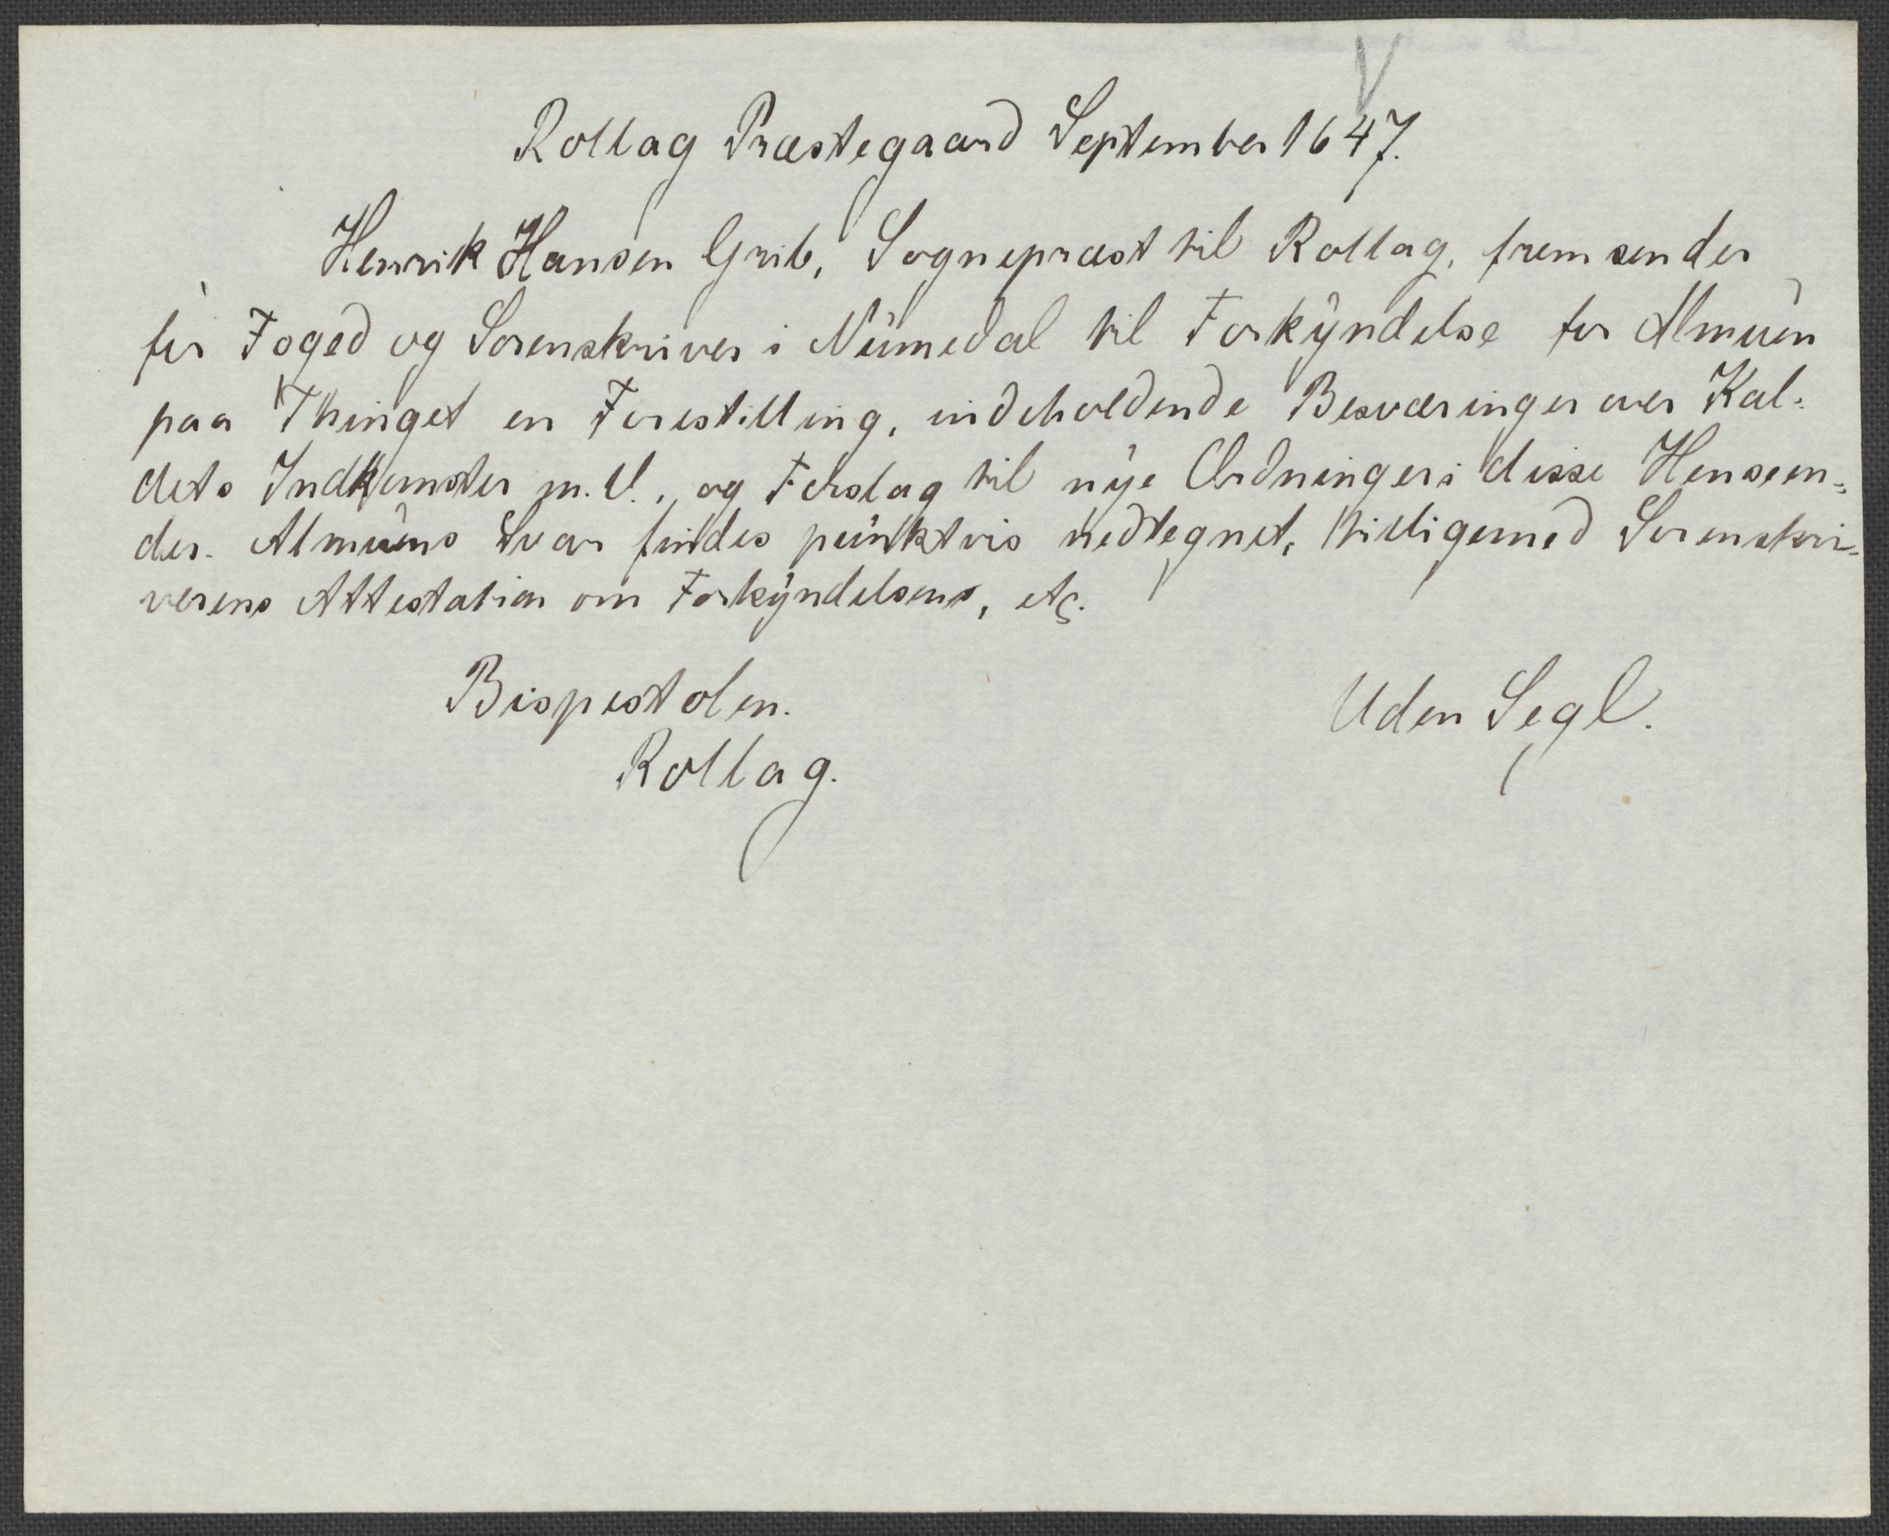 Rollag Præstegaard September 1647.
Henrik Hansen Grib, Sognepræst til Rollag, fremsender
for Foged og Sorenskriver i Numedal til Forkyndelse for Almuen
paa Thinget en Forestilling, indeholdende Besværinger over Kal-
dets Indkomster m. V., og Forslag til nye Ordninger i disse Henseen-
der. Almuens Svar findes punktvis nedtegnet, tilligemed Sorenskri-
verens Attestation om Forkyndelsens, etc.
Bispestolen.
Uden Segl.
Rollag.